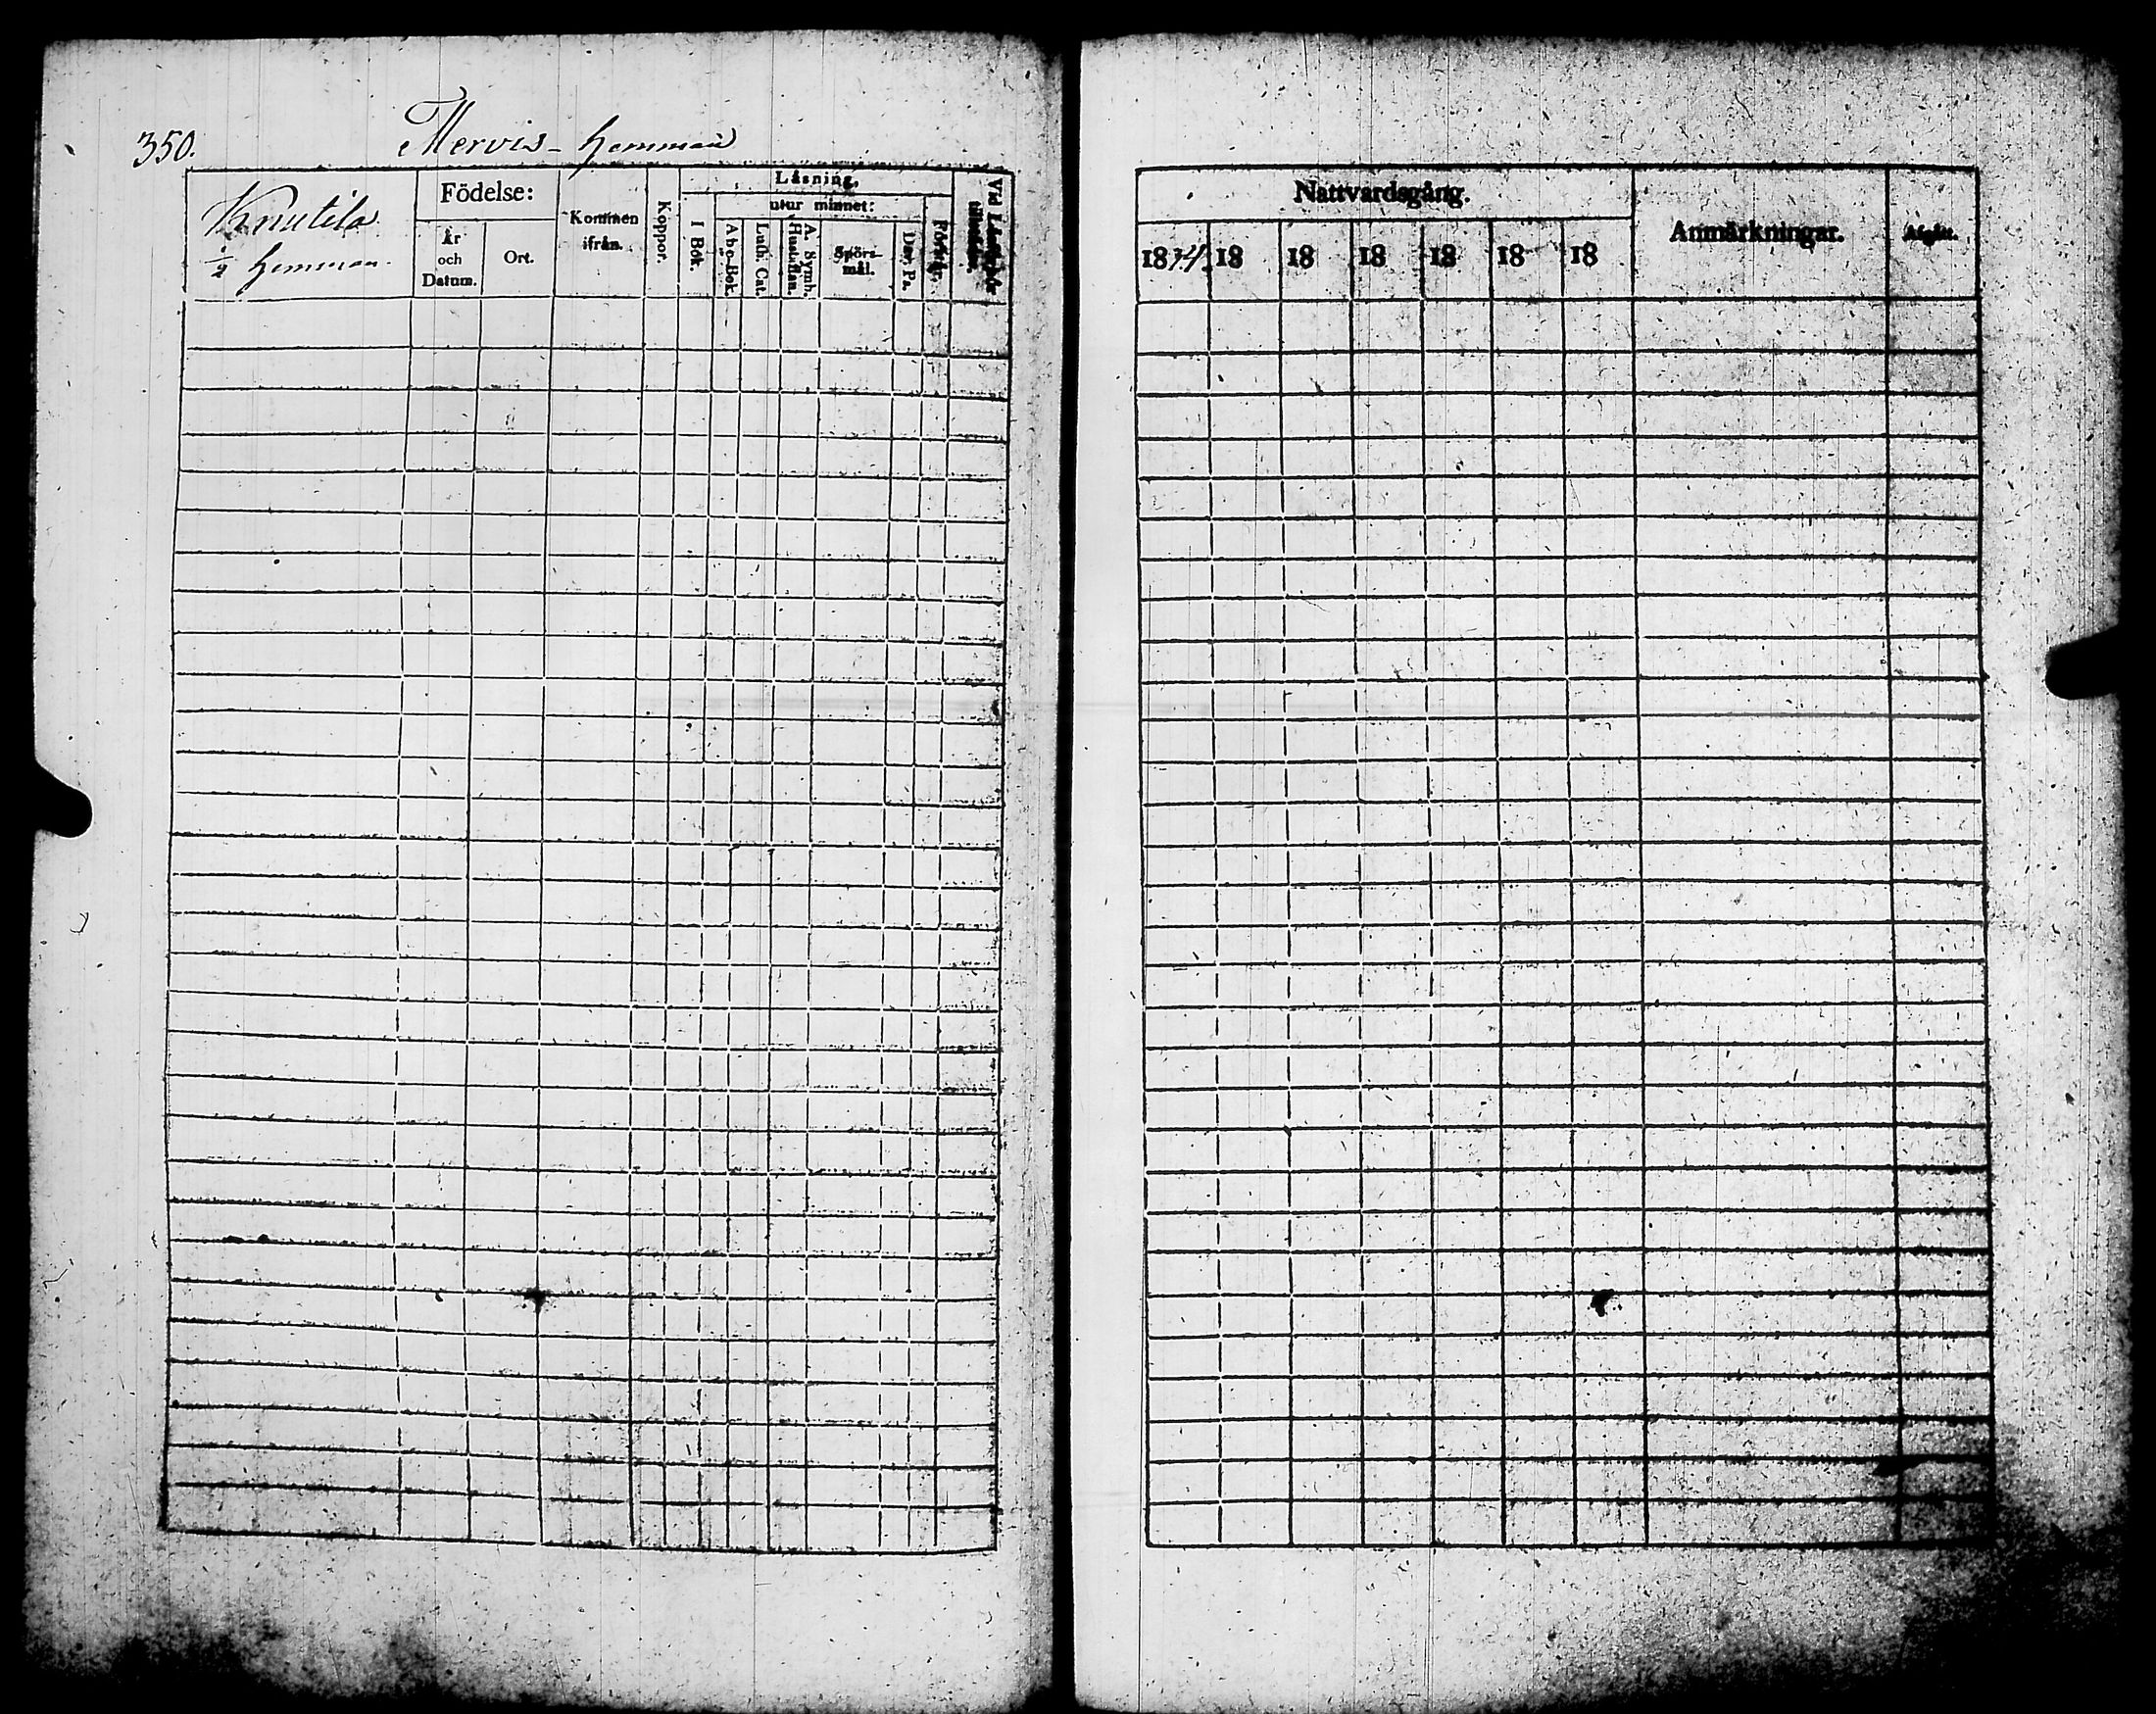 350. Mervis - hemman
Knutila
1/2 hemman.
Födelse:
År och Datum.
Ort.
Kommen ifrån.
Koppor.
Läsning,
I Bok.
utur minnet:
Abc-Bok.
Luth. Cat.
A. Symb. Hust. flan.
Spörsmål.
Dav. Ps.
Förstår.
Vid Läsförhör
Nattvardsgång.
1834.
18
18
18
18
18
18
Anmärkningar.
Afgått.